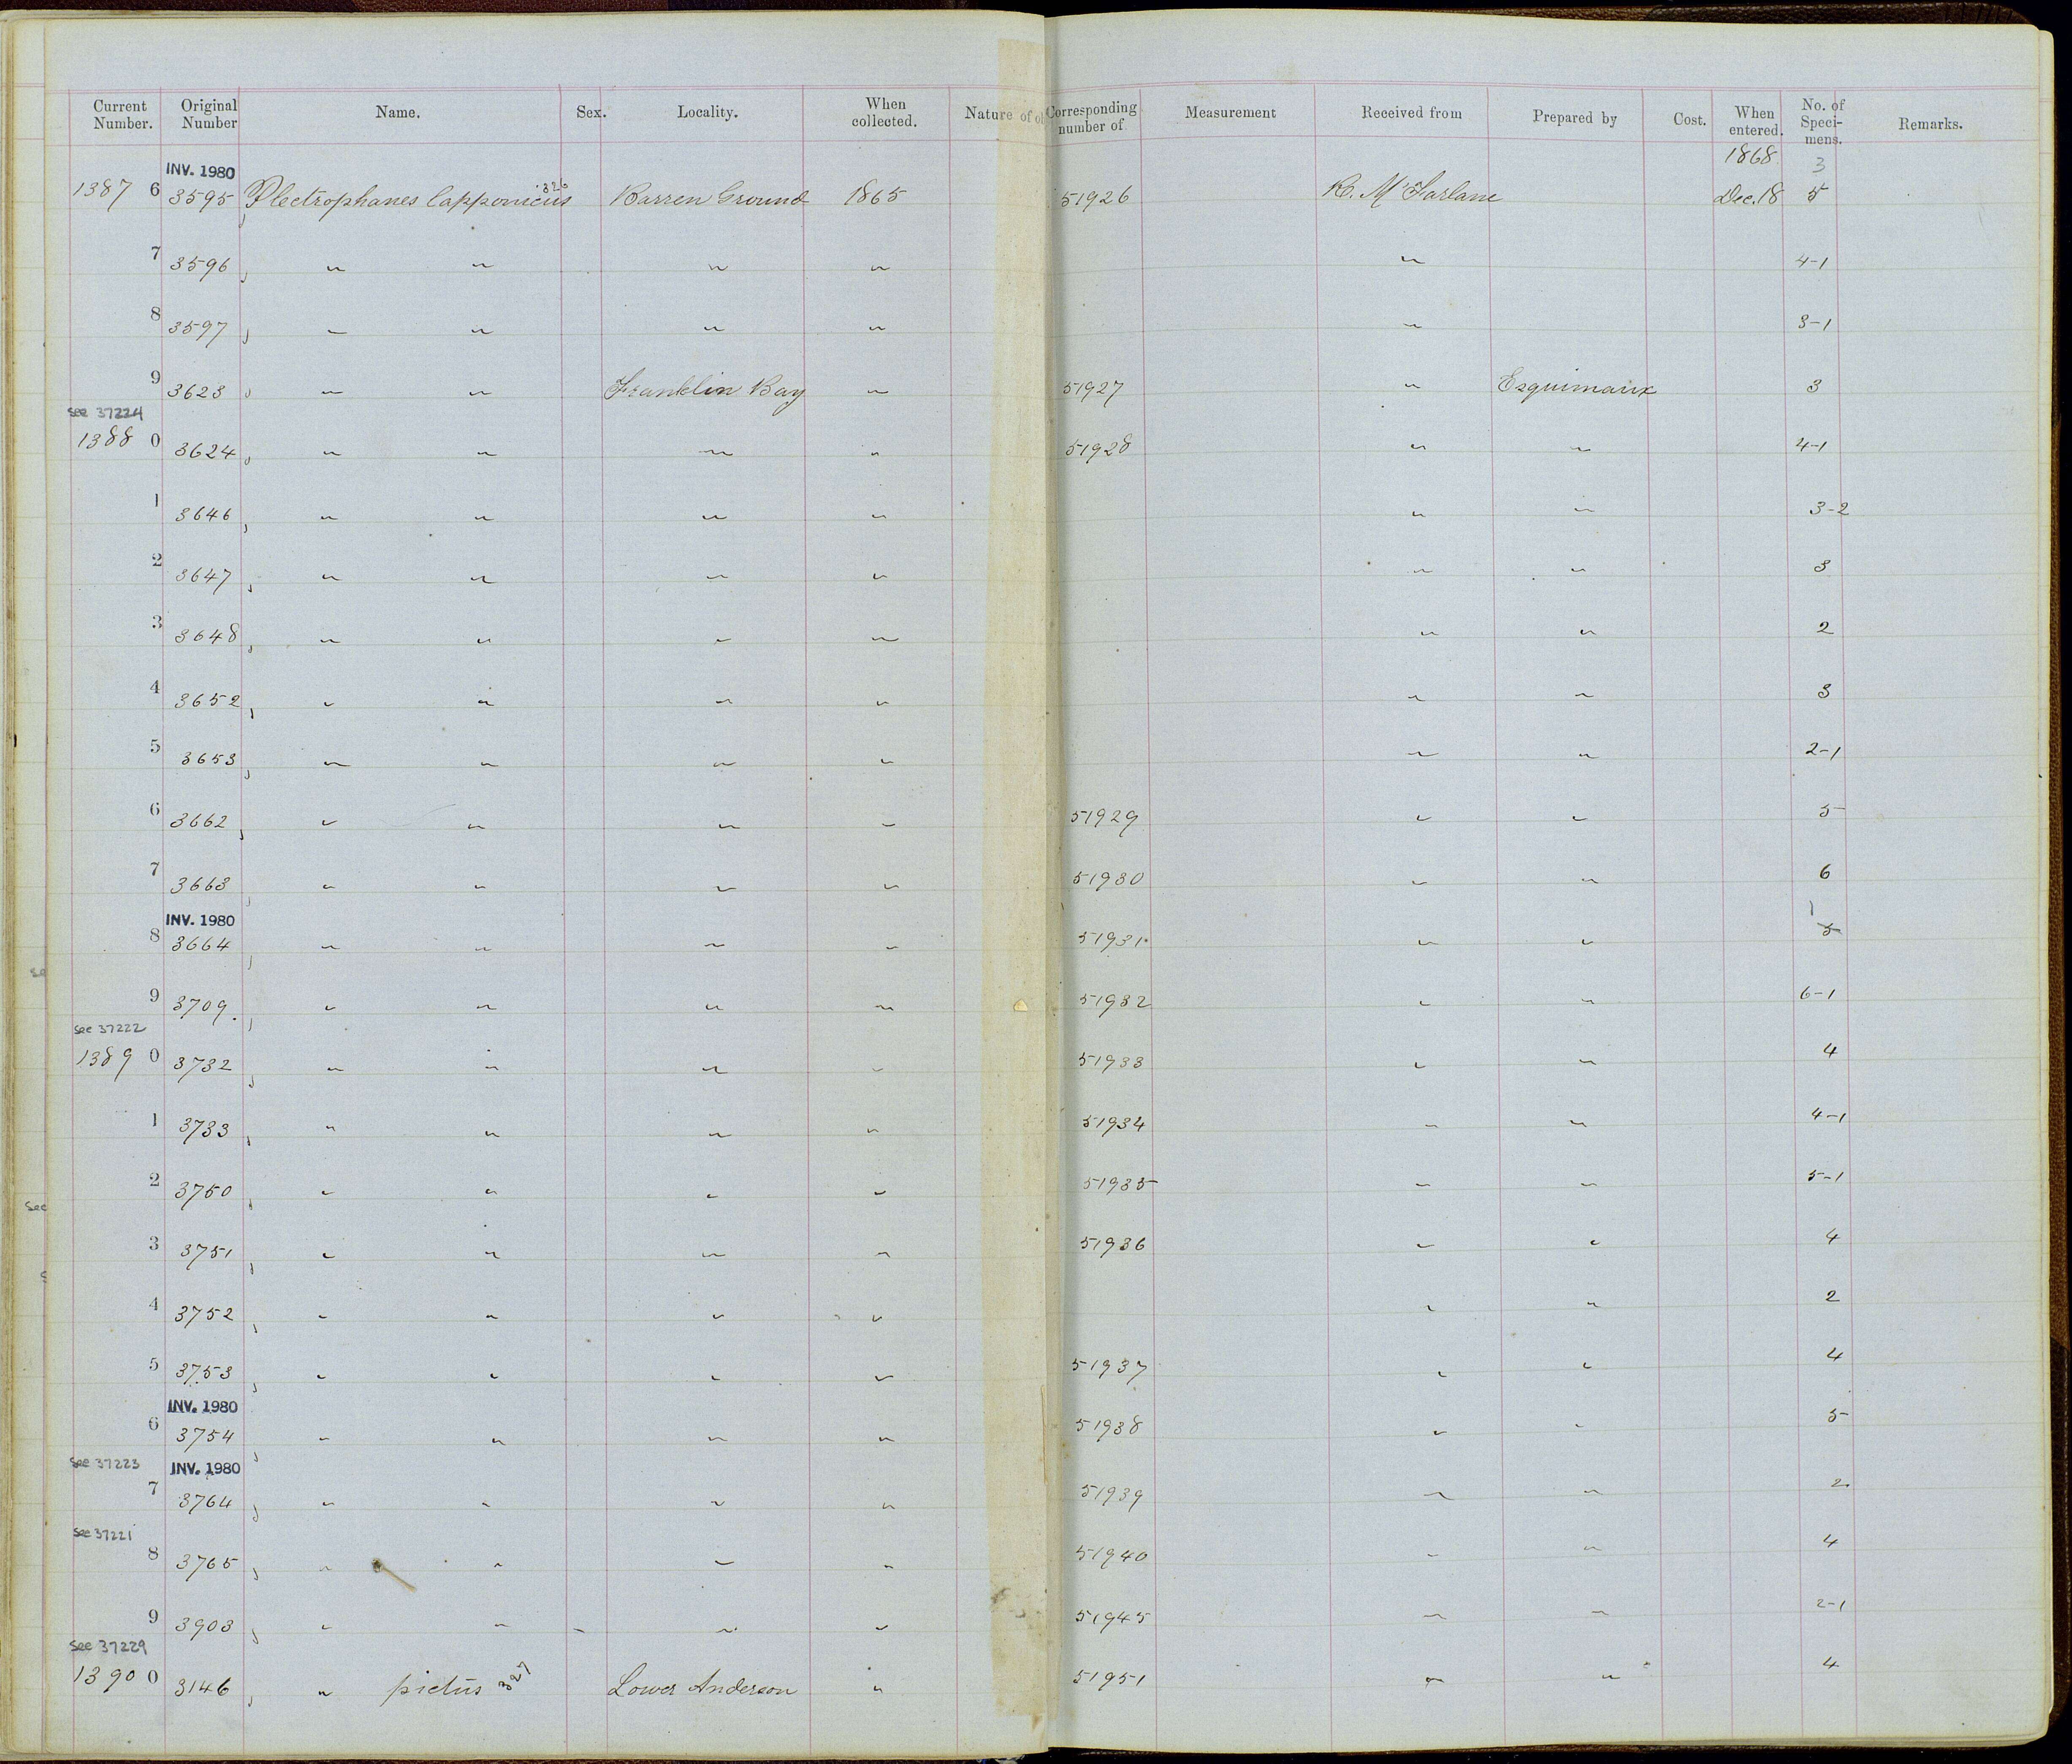 Current Number. Original Number Name. Sex. Locality. When collected. Nature of Corresponding number of Measurement Received from Prepared by Cost. When entered. No. of Speci- mens. Remarks.
INV. 1980 326 1868 3
1387 6 3595 Plectrophanes lapponicus Barren Ground 1865 51926 R. McFarlane Dec. 18 5
7 3596 " " " " " 4-1
8 3597 " " " " " 3-1
9 3623 " " Franklin Bay " 51927 " Esquimaux 3
see 37224
1388 0 3624 " " " " 51928 " " 4-1
1 3646 " " " " " " 3-2
2 3647 " " " " " " 3
3 3648 " " " " " " 2
4 3652 " " " " " " 3
5 3653 " " " " " " 2-1
6 3662 " " " " 51929 " " 5
7 3663 " " " " 51930 " " 6
INV. 1980 1
8 3664 " " " " 51931 " " 5
9 3709 " " " " 51932 " " 6-1
see 37222
1389 0 3732 " " " " 51933 " " 4
1 3733 " " " " 51934 " " 4-1
2 3750 " " " " 51935 " " 5-1
see
3 3751 " " " " 51936 " " 4
4 3752 " " " " " " 2
5 3753 " " " " 51937 " " 4
INV. 1980
6 3754 " " " " 51938 " " 5
see 37223 INV. 1980
7 3764 " " " " 51939 " " 2
see 37221
8 3765 " " " " 51940 " " 4
9 3903 " " " " 51945 " " 2-1
see 37229
1390 0 3146 " pictus 327 Lower Anderson " 51951 " " 4